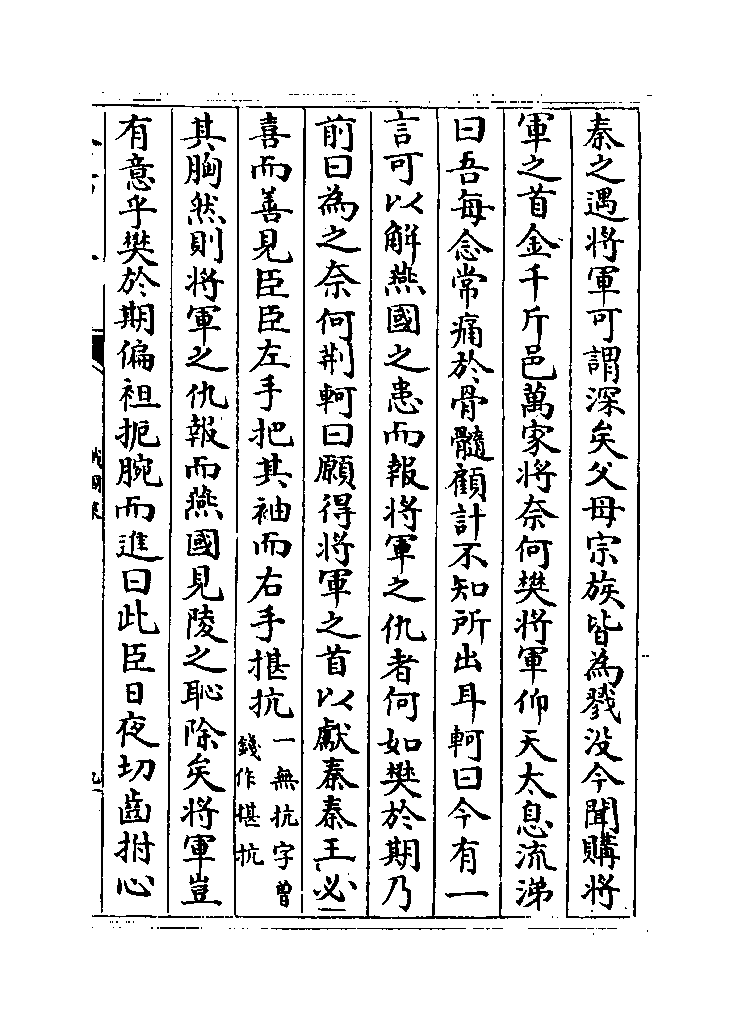 秦之遇將軍可謂深矣父母宗族皆為戮没今聞購將
軍之首金千斤邑萬家將奈何樊將軍仰天太息流涕
曰吾每念常痛於骨髓顧計不知所出耳軻曰今有一
言可以解燕國之患而報將軍之仇者何如樊於期乃
前曰為之奈何荆軻曰願得將軍之首以獻秦秦王必
喜而善見臣臣左手把其袖而右手揕抗一無抗字曽錢作揕抗
其胸然則將軍之仇報而燕國見陵之恥除矣將軍豈
有意乎樊於期偏袒扼腕而進曰此臣日夜切齒拊心